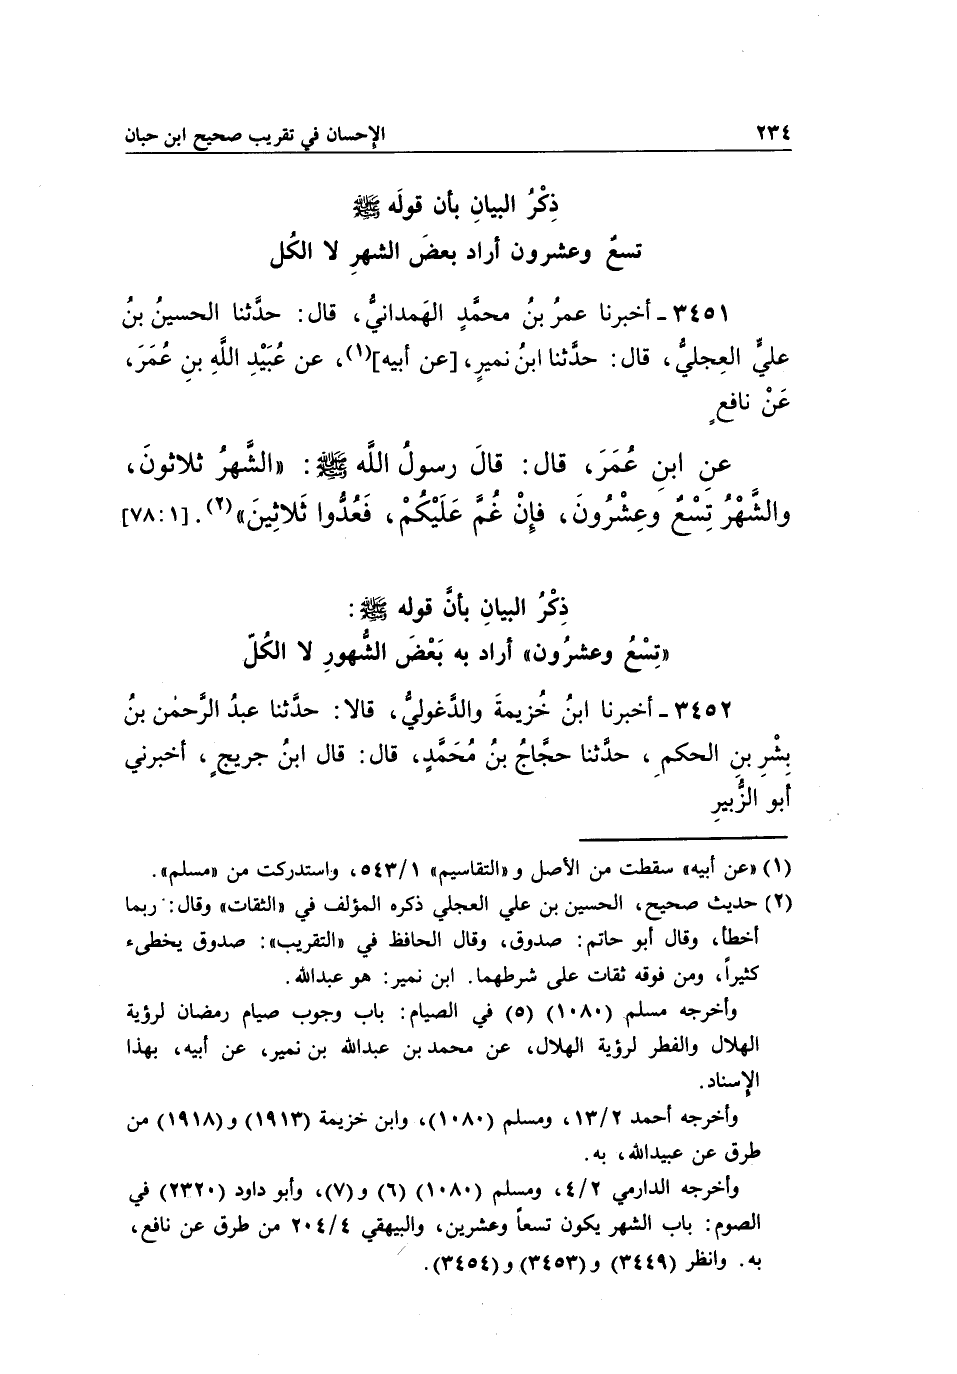 ٢٣٤ الإحسان في تقريب صحيح ابن حبان
ذِكْرُ البيانِ بأن قولَه ﷺ
تسعٌ وعشرون أراد بعضَ الشهرِ لا الكُل
٣٤٥١ - أخبرنا عمرُ بنُ محمَّدٍ الهَمدانيُّ، قال: حدَّثنا الحسينُ بنُ
عليٍّ العِجليُّ، قال: حدَّثنا ابنُ نميرٍ، [عن أبيه](١)، عن عُبَيْدِ اللَّهِ بنِ عُمَرَ،
عَنْ نافعٍ
عنِ ابنِ عُمَرَ، قال: قالَ رسولُ اللَّه ﷺ: «الشَّهرُ ثلاثونَ،
والشَّهْرُ تِسْعٌ وعِشْرُونَ، فإِنْ غُمَّ عَلَيْكُمْ، فَعُدُّوا ثَلاثِينَ»(٢). [٧٨:١]
ذِكْرُ البيانِ بأنَّ قوله ﷺ:
«تِسْعٌ وعشرُون» أراد به بَعْضَ الشُّهورِ لا الكُلّ
٣٤٥٢ - أخبرنا ابنُ خُزيمةَ والدَّغوليُّ، قالا: حدَّثنا عبدُ الرَّحمٰن بنُ
بِشْرِ بنِ الحكمِ، حدَّثنا حجَّاجُ بنُ مُحَمَّدٍ، قال: قال ابنُ جريجٍ، أخبرني
أبو الزُّبيرِ
(١) «عن أبيه» سقطت من الأصل و«التقاسيم» ٥٤٣/١، واستدركت من «مسلم».
(٢) حديث صحيح، الحسين بن علي العجلي ذكره المؤلف في «الثقات» وقال: ربما
أخطأ، وقال أبو حاتم: صدوق، وقال الحافظ في «التقريب»: صدوق يخطىء
كثيراً، ومن فوقه ثقات على شرطهما. ابن نمير: هو عبدالله.
وأخرجه مسلم (١٠٨٠) (٥) في الصيام: باب وجوب صيام رمضان لرؤية
الهلال والفطر لرؤية الهلال، عن محمد بن عبدالله بن نمير، عن أبيه، بهذا
الإسناد.
وأخرجه أحمد ١٣/٢، ومسلم (١٠٨٠)، وابن خزيمة (١٩١٣) و(١٩١٨) من
طرق عن عبيدالله، به.
وأخرجه الدارمي ٤/٢، ومسلم (١٠٨٠) (٦) و(٧)، وأبو داود (٢٣٢٠) في
الصوم: باب الشهر يكون تسعاً وعشرين، والبيهقي ٢٠٤/٤ من طرق عن نافع،
به. وانظر (٣٤٤٩) و(٣٤٥٣) و(٣٤٥٤).